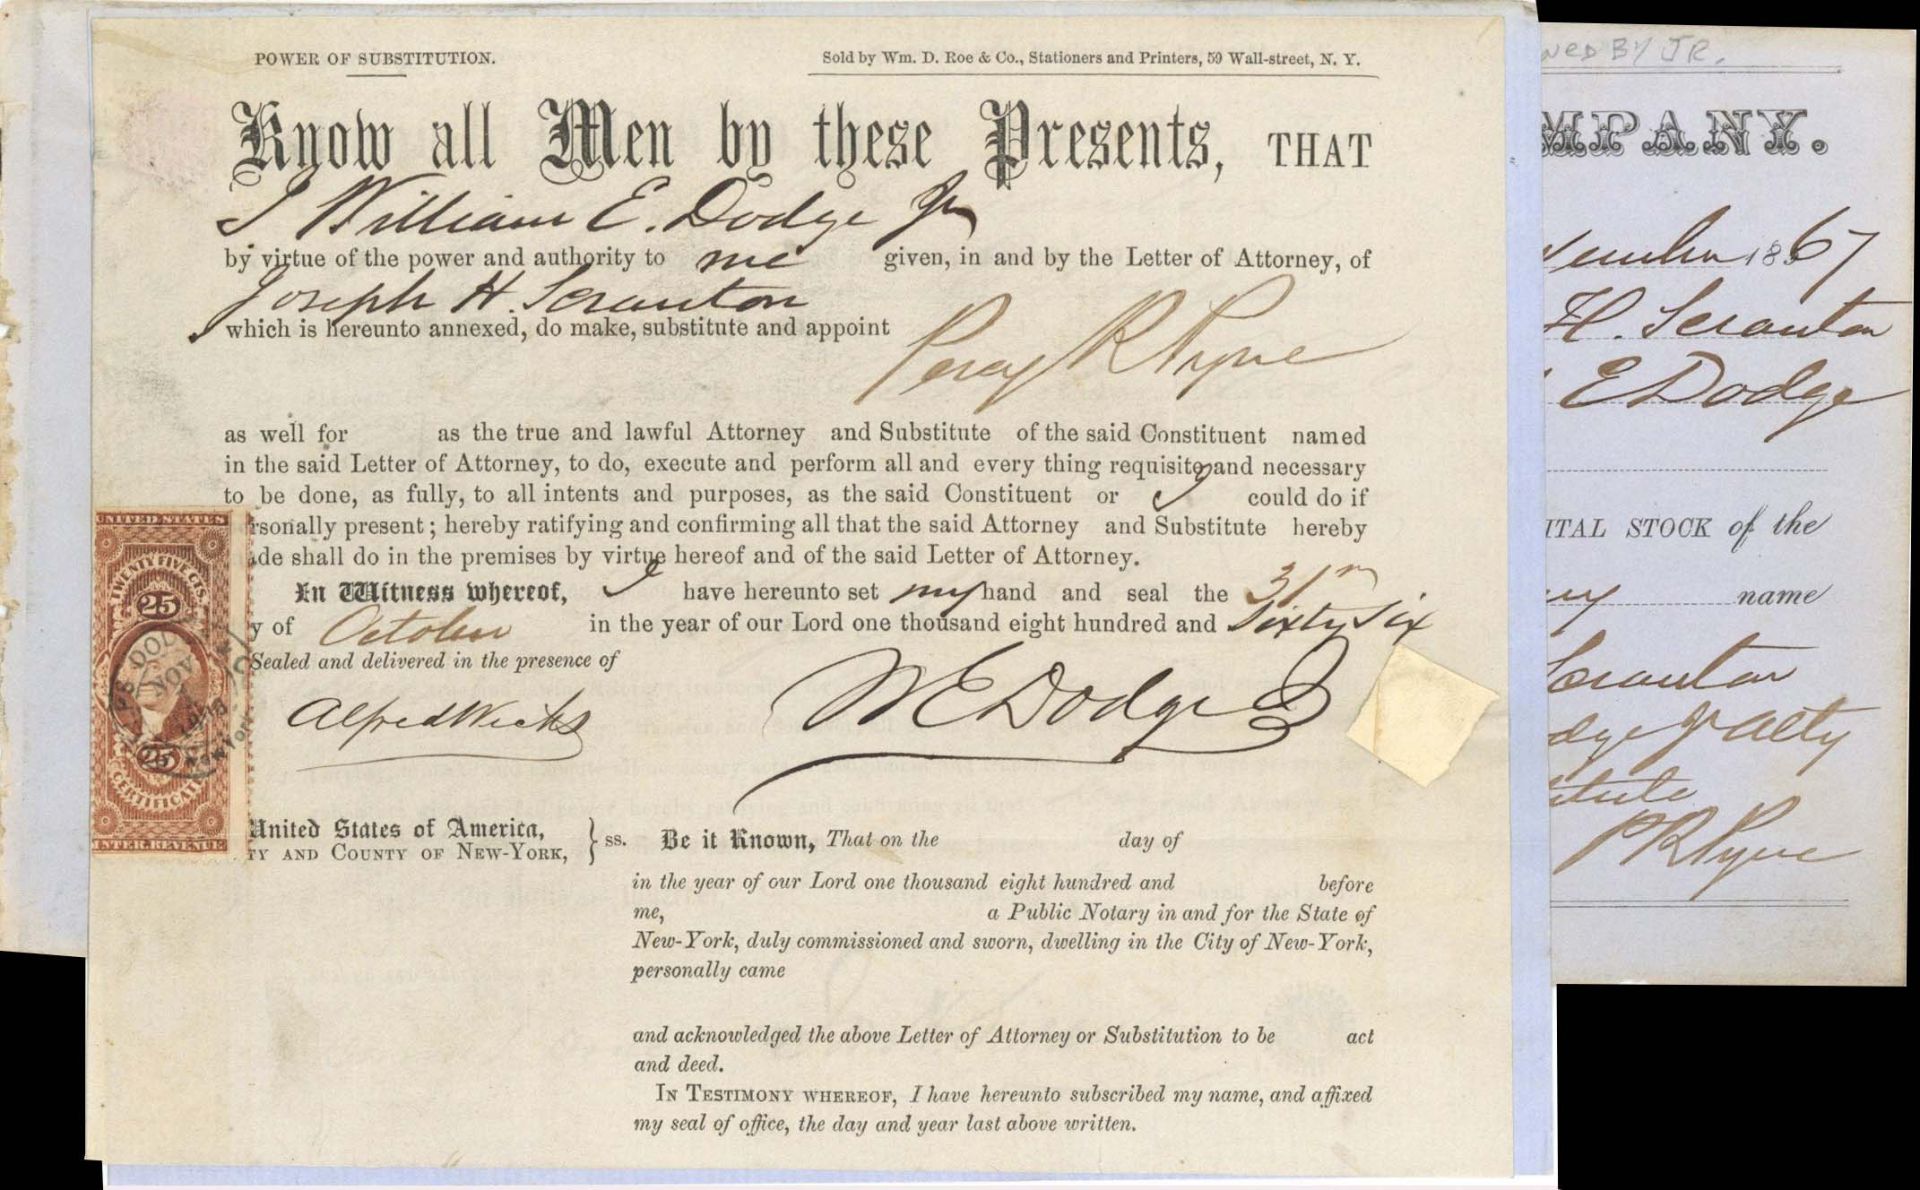 POWER OF SUBSTITUTION.
Sold by Wm. D. Roe & Co., Stationers and Printers, 59 Wall-street, N. Y.
Know all Men by these Presents, THAT
I William E. Dodge Jr
by virtue of the power and authority to me given, in and by the Letter of Attorney, of
Joseph H. Scranton
which is hereunto annexed, do make, substitute and appoint
Percy R Pyne
as well for as the true and lawful Attorney and Substitute of the said Constituent named
in the said Letter of Attorney, to do, execute and perform all and every thing requisite and necessary
to be done, as fully, to all intents and purposes, as the said Constituent or I could do if
rsonally present; hereby ratifying and confirming all that the said Attorney and Substitute hereby
ade shall do in the premises by virtue hereof and of the said Letter of Attorney.
In Witness whereof, I have hereunto set my hand and seal the 31
y of October in the year of our Lord one thousand eight hundred and Sixty Six
Sealed and delivered in the presence of
W E Dodge Jr
United States of America,
TY AND COUNTY OF NEW-YORK, } ss.
Be it Known, That on the day of
in the year of our Lord one thousand eight hundred and before
me, a Public Notary in and for the State of
New-York, duly commissioned and sworn, dwelling in the City of New-York,
personally came
and acknowledged the above Letter of Attorney or Substitution to be act
and deed.
IN TESTIMONY WHEREOF, I have hereunto subscribed my name, and affixed
my seal of office, the day and year last above written.
UNITED STATES
TWENTY FIVE CTS.
25
NOV
25
CERTIFICATE
INTER. REVENUE
NED BY JR.
MPANY.
vember 1867
H. Scranton
E Dodge
ITAL STOCK of the
name
Scranton
dge Jr Atty
titute
P R Pyne